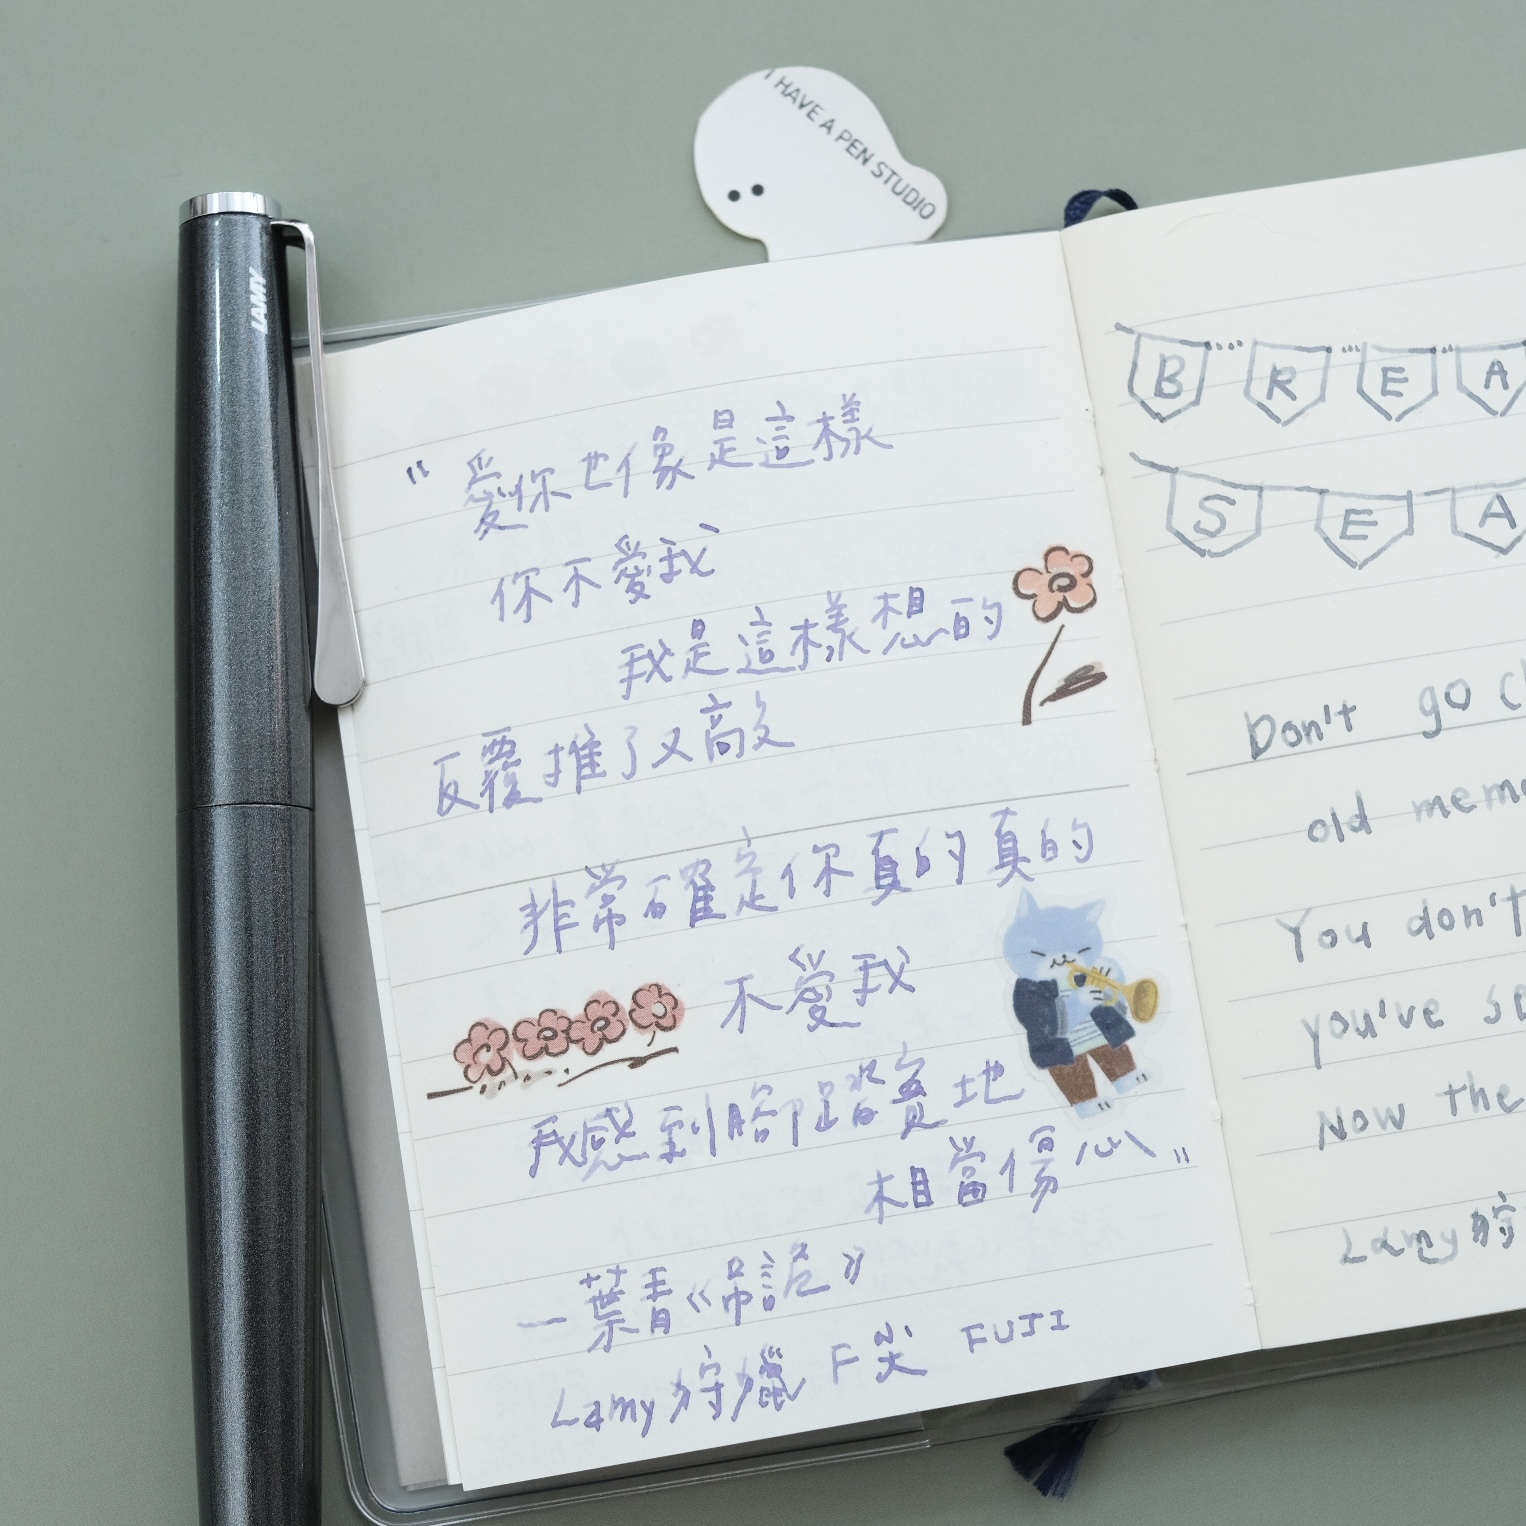 I HAVE A PEN STUDIO
LAMY
"愛你也像是這樣
你不愛我
我是這樣想的
反覆推了又敲
非常確定你真的真的
不愛我
我感到腳踏實地
相當傷心"
—葉青《弔詭》
Lamy狩獵 F尖 FUJI
B R E A
S E A
Don't go c
old mem
You don't
you've s
Now the
Lamy狩